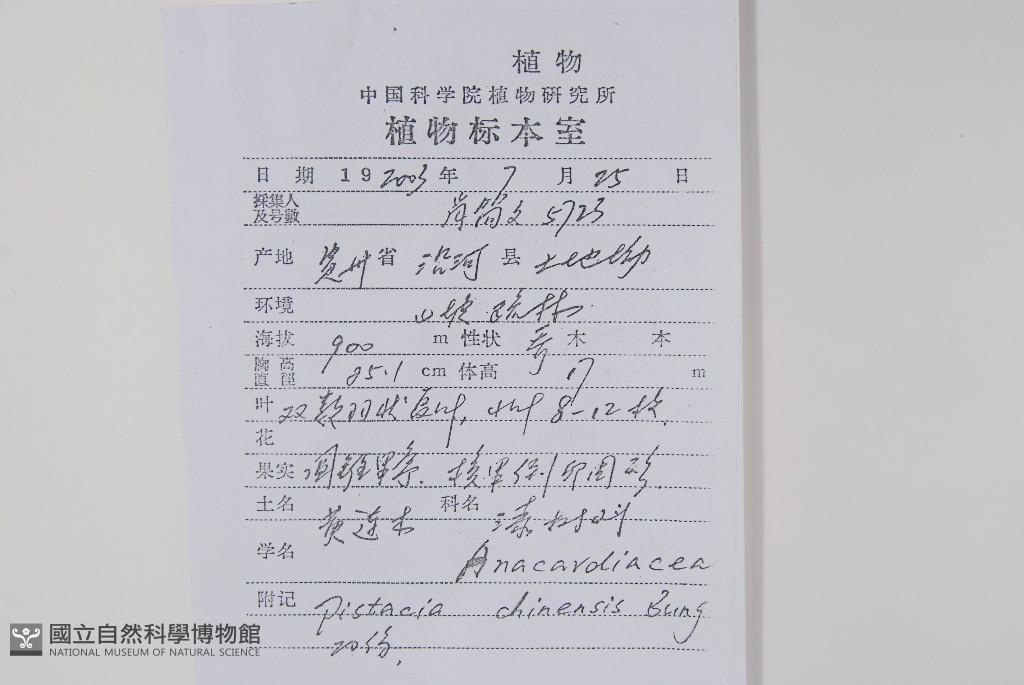 植物
中国科学院植物研究所
植物标本室
日期 19 2003 年 7 月 25 日
採集人
及号數 5723
产地 贵州 省 沿河 县 土地坳
环境 山坡疏林
海拔 900 m 性状 乔 木 本
胸高
直徑 25.1 cm 体高 17 m
叶 双数羽状复叶, 小叶 8-12 枚.
花
果实 圆锥果序. 核果倒卵圆形.
土名 黄连木 科名 漆树科
学名 Anacardiacea
附记 Pistacia chinensis Bung
20份.
國立自然科學博物館
NATIONAL MUSEUM OF NATURAL SCIENCE